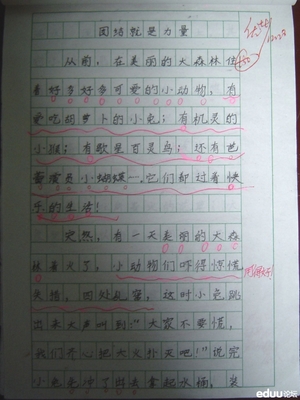 团结就是力量
从前，在美丽的大森林住
着好多好多可爱的小动物，有
爱吃胡萝卜的小兔；有机灵的
小猴；有歌星百灵鸟；还有芭
蕾演员小蝴蝶…它们都过着快
乐的生活！
突然，有一天美丽的大森
林着火了，小动物们吓得惊慌
失措，四处乱窜，这时小兔跳
出来大声叫到："大家不要慌，
我们齐心把大火扑灭吧！"说完
小兔 冲了 拿起水桶，装
eduu论坛